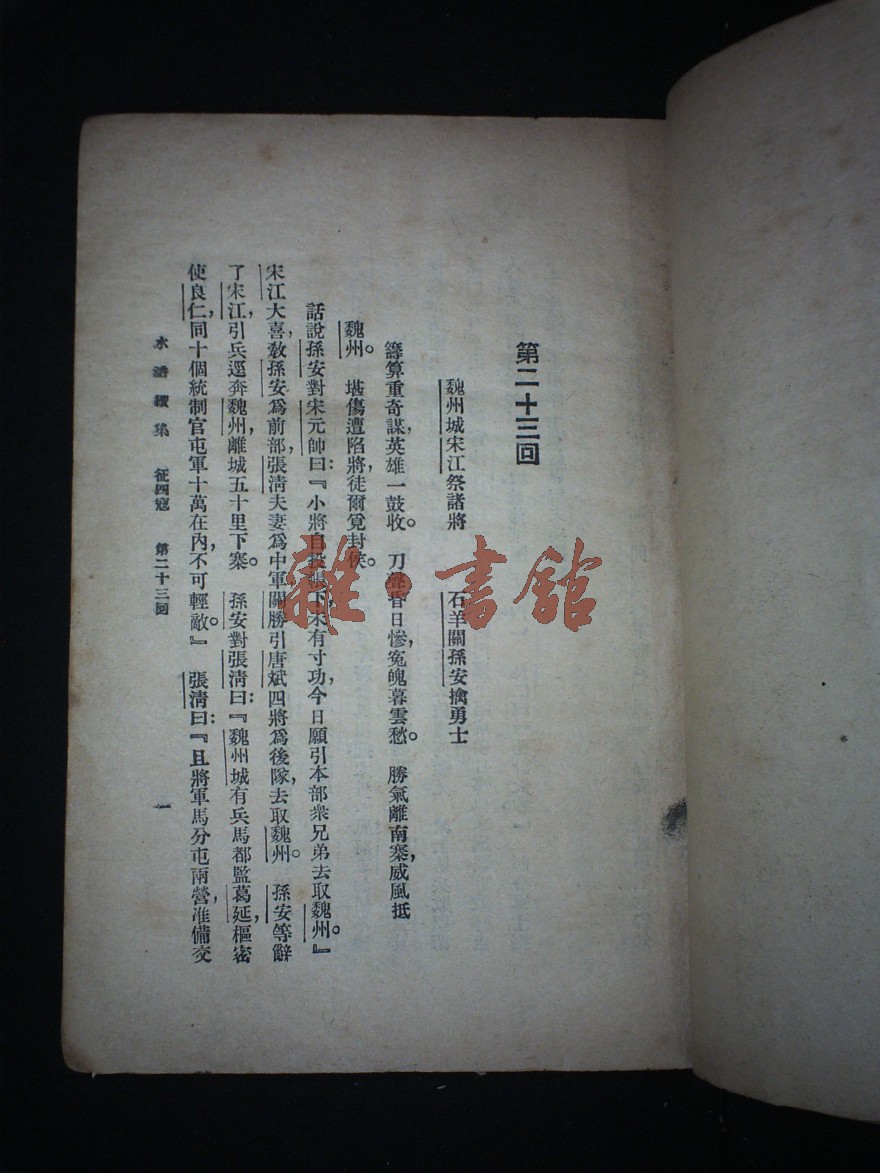 第二十三回
魏州城宋江祭諸將　石羊關孫安擒勇士
籌算重奇謀，英雄一鼓收。刀聲昏日慘，冤魄暮雲愁。勝氣離南寨，威風抵
魏州。堪傷遭陷將，徒爾覓封侯。
話說孫安對宋元帥曰：『小將自投帳下，未有寸功，今日願引本部衆兄弟去取魏州。』
宋江大喜，敎孫安爲前部，張淸夫妻爲中軍，關勝引唐斌四將爲後隊，去取魏州。孫安等辭
了宋江，引兵逕奔魏州，離城五十里下寨。孫安對張淸曰：『魏州城有兵馬都監葛延，樞密
使良仁，同十個統制官屯軍十萬在內，不可輕敵。』張淸曰：『且將軍馬分屯兩營，准備交
水滸續集　征四寇　第二十三回　一
雜·書館